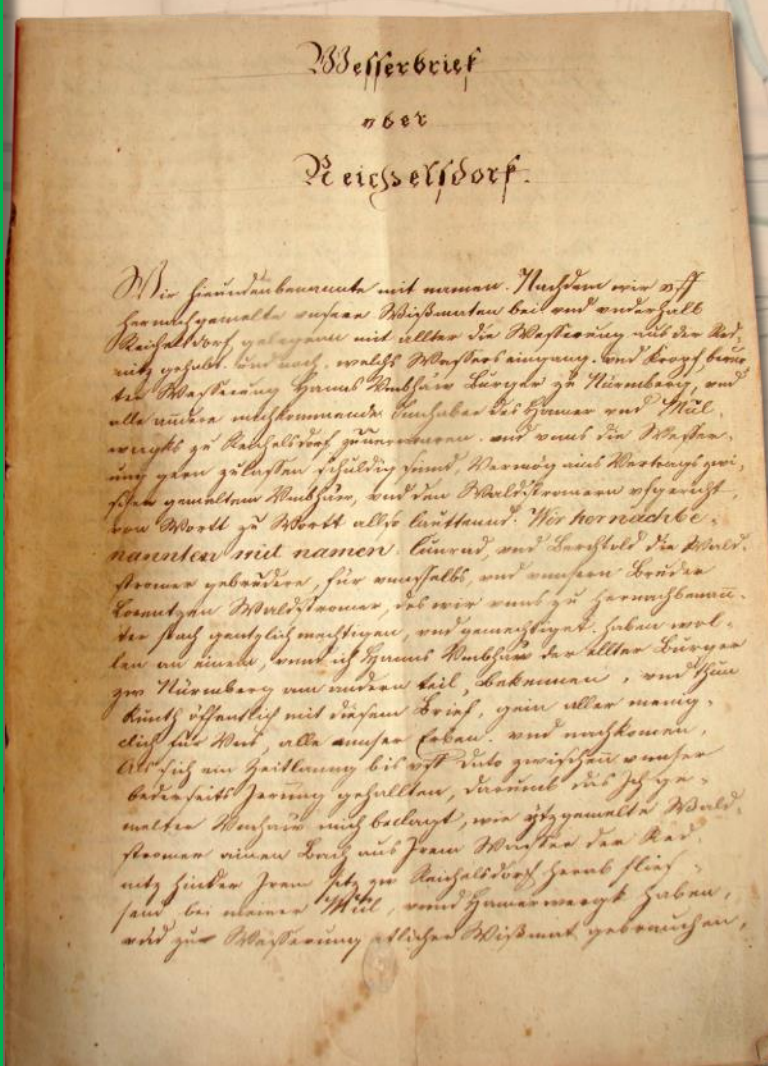 Wesserbrief
vber
Reichelsdorf.
Wir hieundenbenannte mit namen. Nachdem wir vff
hernachgemelte vnsere Wißmaten bei vnd vnderhalb
Reichelsdorf gelegenn mit allter die Wesserung aus der Red,
nitz gehabt. und noch. welchs Wassers eingang. vnd Kropf,
ter Wesserung Hanns Vmbhaw Burger zu Nürmberg, vnd
alle andere nachkommende Innhaber des Hamer vnd Mül,
wergks zu Reichelsdorf zuuerwaren. vnd vnns die Wesser,
ung gern zulassen schuldig sind, Vermög eins Vertrags zwi,
schen gemeltem Vmbhaw, vnd den Waldstromern vfgericht,
von Wortt zu Wortt allso lauttennd. Wir hernachbe,
nannten mit namen. Cunrad, vnd Berchtold die Wald,
stromer gebrudere, für vnnsselbs, vnd vnnsern Bruder
Lorentzen Waldstromer, des wir vnns zu hernachbenan,
ter sach gentzlich mechtigen, vnd gemechtiget. haben wol,
len an einem, vnnd ich Hanns Vmbhaw der ellter Burger
zw Nürmberg am andern teil, bekennen, vnd thun
kunth öffentlich mit diesem Brief, gein aller menig,
clich für Vns, alle vnnser Erben. vnd nachkomen,
Als sich ein Zeitlanng bis vff dato zwischen vnnser
bederseits Irrung gehallten, darumb das Ich ge,
melter Vmhaw mich beclagt, wie ytzgemelte Wald,
stromer ainen Bach aus Irem Wasser der Red,
nitz hinder Irem sitz zu Reichelsdorf herab flies,
send, bei meiner Mül, vnnd Hamerwergk haben,
vnd zu Wesserung etlicher Wißmat gebrauchen,